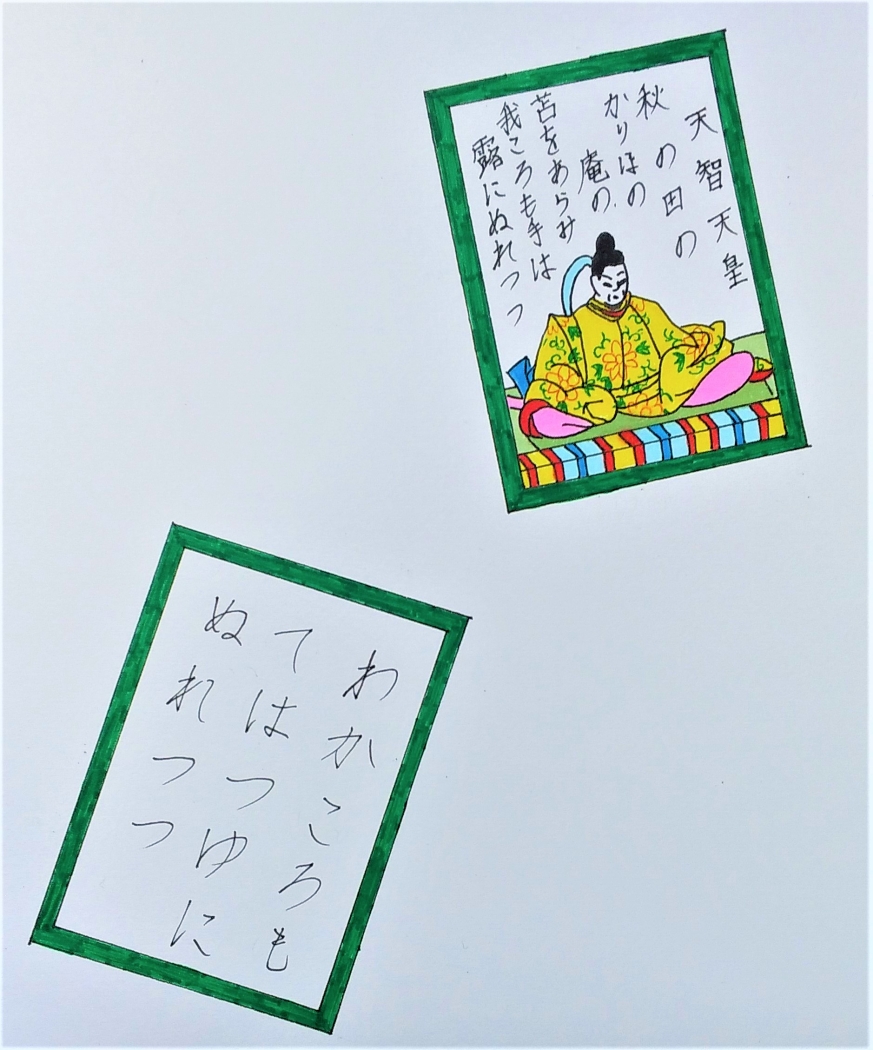 天智天皇
秋の田の
かりほの
庵の
苫をあらみ
我ころも手は
露にぬれつつ
わかころも
てはつゆに
ぬれつつ